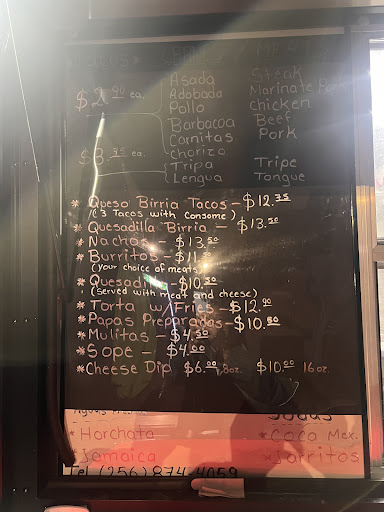 Tacos
$2.90 ea.
Asada Steak
Adobada Marinate Pork
Pollo Chicken
Barbacoa Beef
Carnitas Pork
$3.25 ea.
Chorizo
Tripa Tripe
Lengua Tongue
* Queso Birria Tacos - $12.75
(3 Tacos with Consome)
* Quesadilla Birria - $13.50
* Nachos - $13.50
* Burritos - $11.50
(your choice of meats)
* Quesadilla - $10.50
(served with meat and cheese)
* Torta w/ Fries - $12.90
* Papas Preparadas - $10.50
* Mulitas - $4.50
* Sope - $4.00
* Cheese Dip $6.00 8oz. $10.00 16oz.
Aguas Sodas
* Horchata * Coca Mex.
* Jamaica * Jarritos
Tel (256) 874-4059